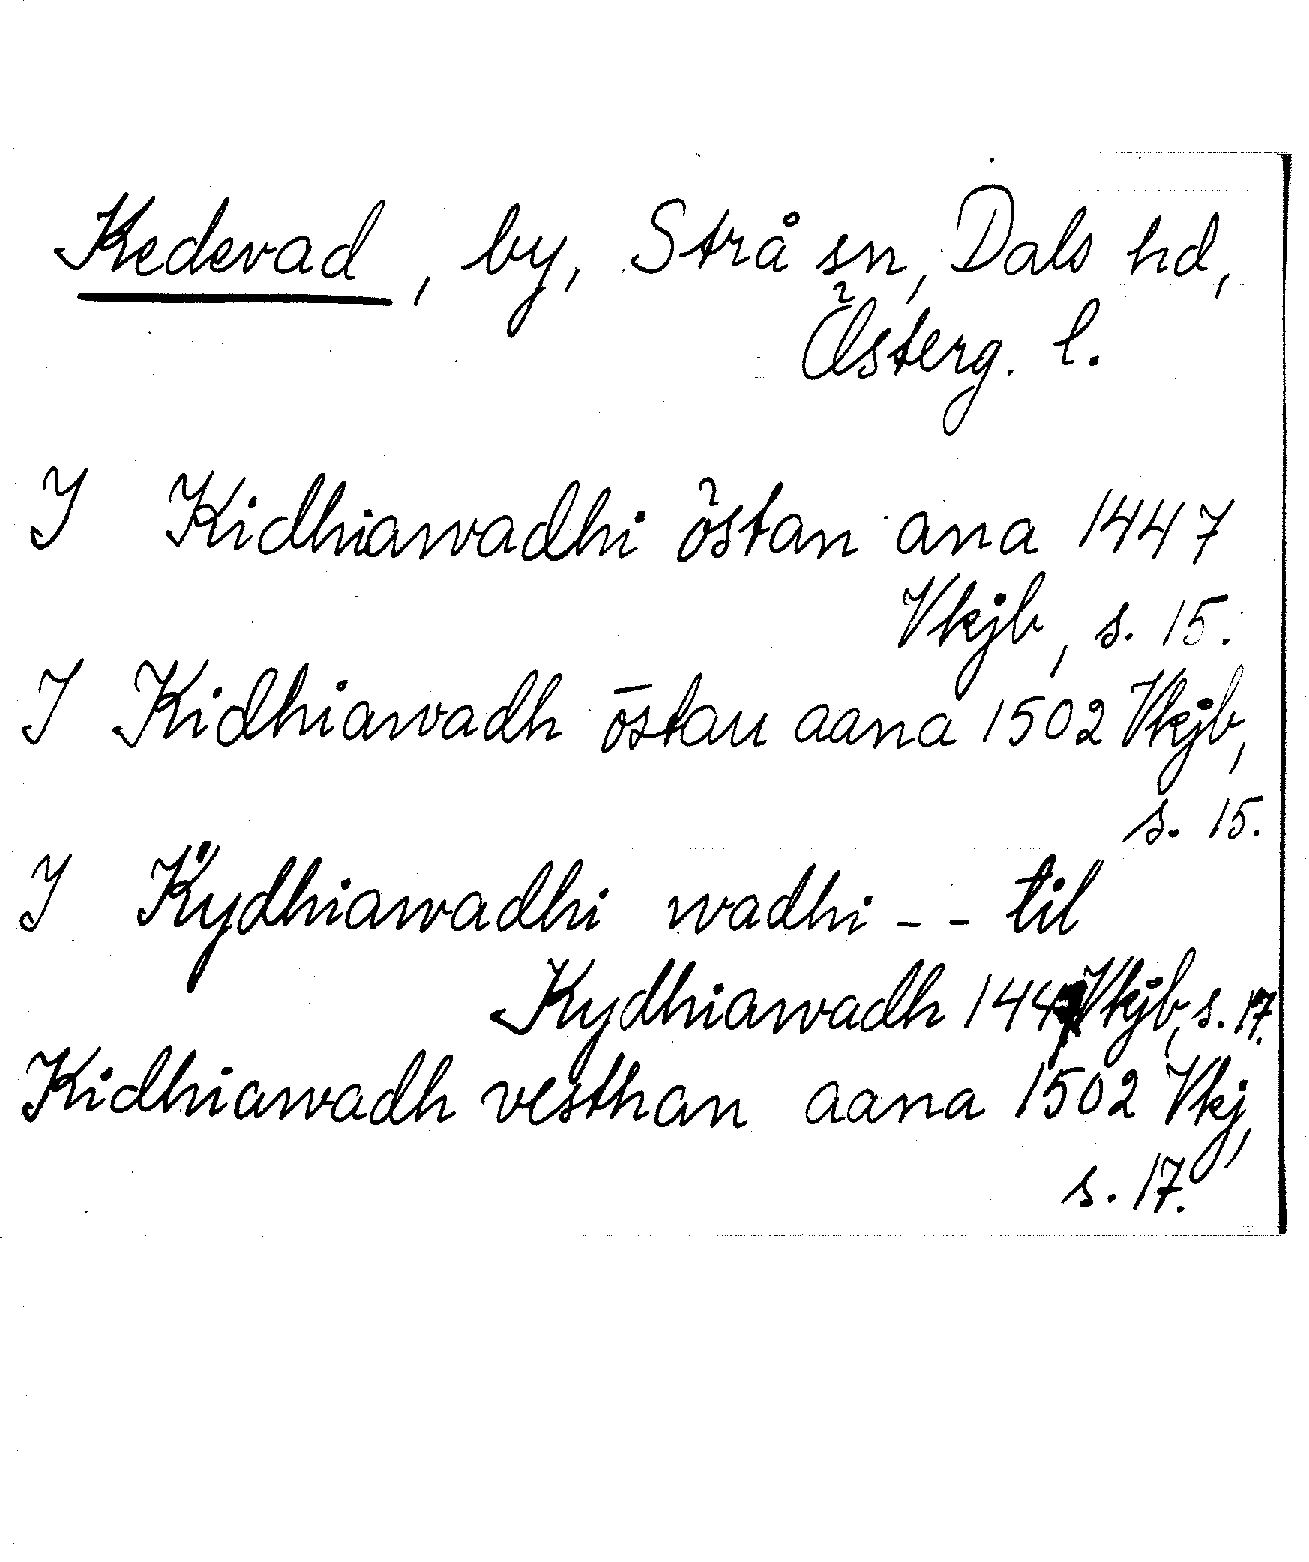 Kedevad, by, Strå sn, Dals hd,
Österg. l.
I Kidhiawadhi östan ana 1447
Vkjb, s. 15.
I Kidhiawadh östan aana 1502 Vkjb,
s. 15.
I Kydhiawadhi wadhi - - til
Kydhiawadh 1447 Vkjb, s. 17.
Kidhiawadh vesthan aana 1502 Vkj,
s. 17.